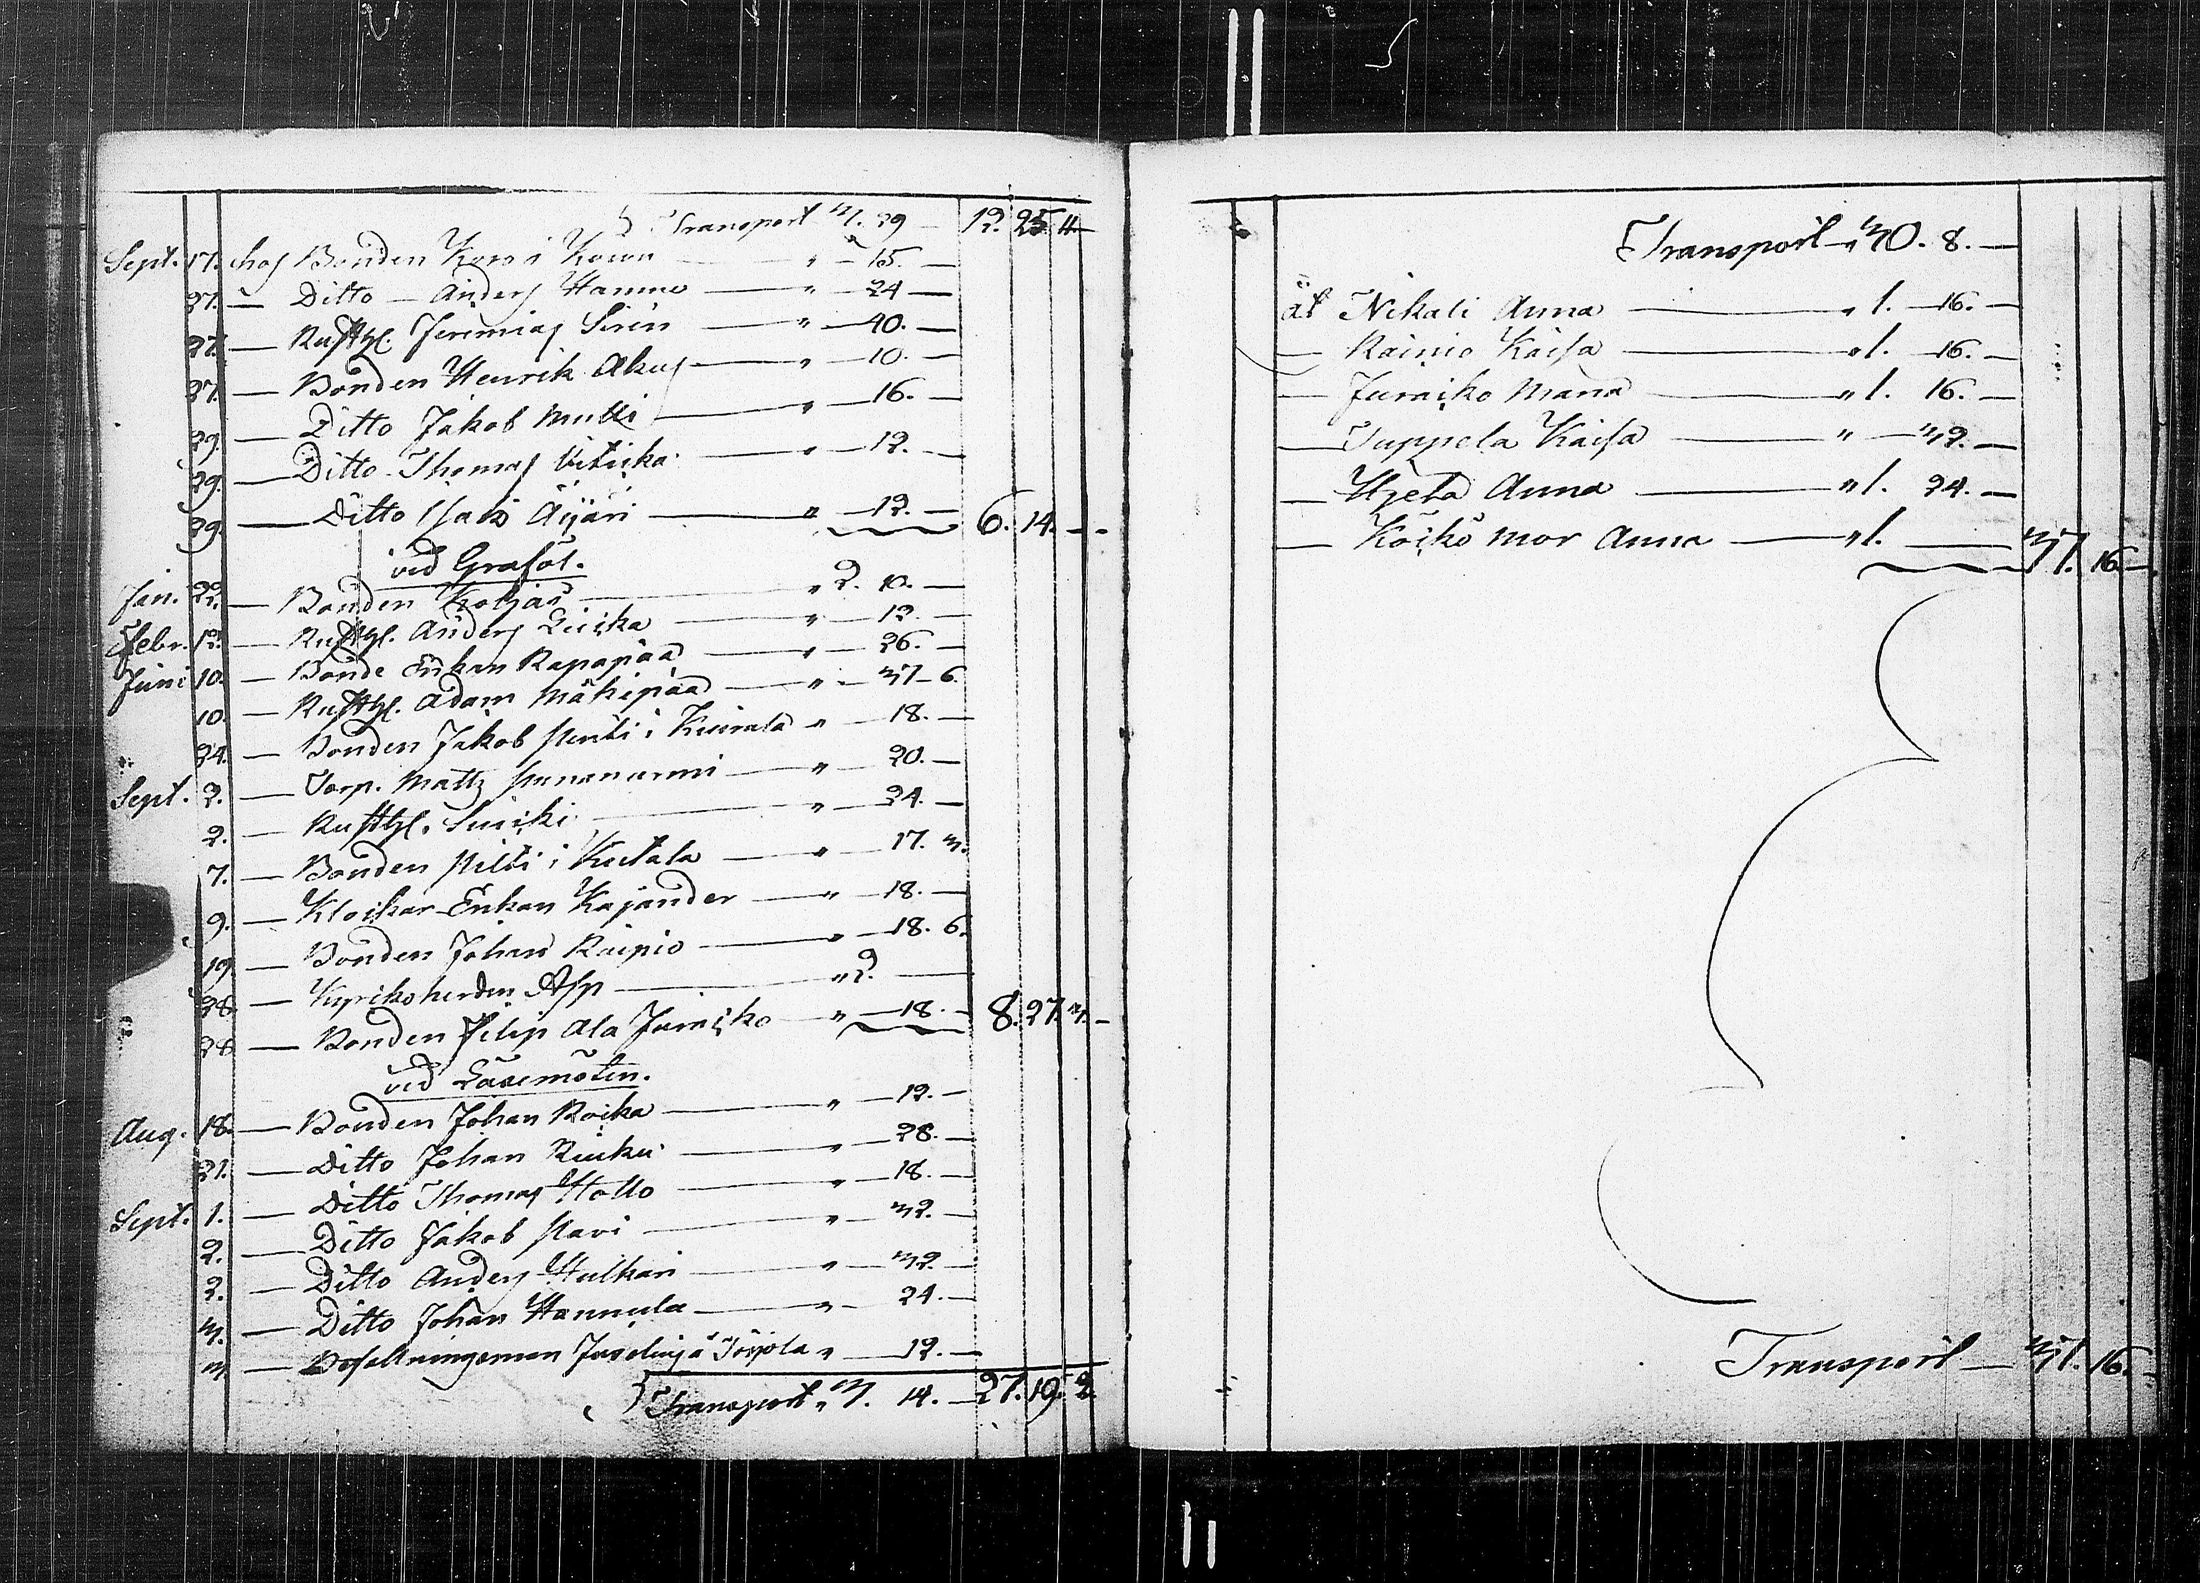 Transport 3. 29 — 12. 25. 4
Sept. 17. hos Bonden Koro i Kown — " — 15. —
27. — Ditto — Anders Hamme — " — 24 —
27. — Rusth. Jeremias Siren — " — 40. —
27. — Bonden Henrik Akus — " — 10. —
29. — Ditto Jakob Mutti — " — 16. —
29. — Ditto Thomas Uitukka — " — 12. —
29. — Ditto Isaks Äijäri — " — 12. — 6. 14. —
vid Grafol.
Jan. 22. — Bonden Koljas — " 2. 10. —
Febr. 12. — Rusth. Anders Quicka — " — 12. —
Juni 10. — Bonde Enkan Rapapää — " — 26. —
10. — Rusth. Adam Mähipää — " — 37 — 6.
24. — Bonden Jakob Pentti i Kuirala " — 18. —
Sept. 2. — Torp. Matts Punanurmi — " — 20. —
2. — Rusth. Suicki — " — 24. —
7. — Bonden Piltti i Keutala — " — 17. 3.
9. — Klockar-Enkan Kajander — " — 18. —
19. — Bonden Johan Raipio — " — 18. 6.
28. — Kyrkoherden Asp — " 2. —
28. — Bonden Filip Ala Jumisko — " — 18. — 8. 27. 3. —
vid Läsemöten.
Aug. 18. — Bonden Johan Roika — " — 12. —
21. — Ditto Johan Kuiku — " — 28. —
Sept. 1. — Ditto Thomas Hollo — " — 18. —
2. — Ditto Jakob Pavi — " — 32. —
2. — Ditto Anders Hulkari — " — 32. —
3. — Ditto Johan Hannula — " — 24. —
3. — Befallningsman Juselius å Törpola " — 12. —
Transport " 3. 14. — 27. 19. 2.
Transport " 30. 8. —
åt Nikali Anna — " 1. — 16. —
— Rainio Kaisa — " 1. — 16. —
— Jumiko Maria — " 1. 16. —
— Tuppela Kaisa — " — 32. —
— Hjeta Anna — " 1. 24. —
— Köikö mor Anna — " 1. — 37. 16. —
Transport — 37. 16. —